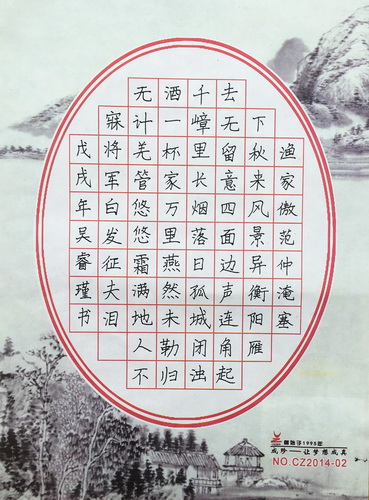 渔家傲范仲淹塞
下秋来风景异衡阳雁
去无留意四面边声连角起
千嶂里长烟落日孤城闭浊
酒一杯家万里燕然未勒归
无计羌管悠悠霜满地人不
寐将军白发征夫泪
戊戌年吴睿瑾书
创始于1995年
成珍——让梦想成真
NO.CZ2014-02